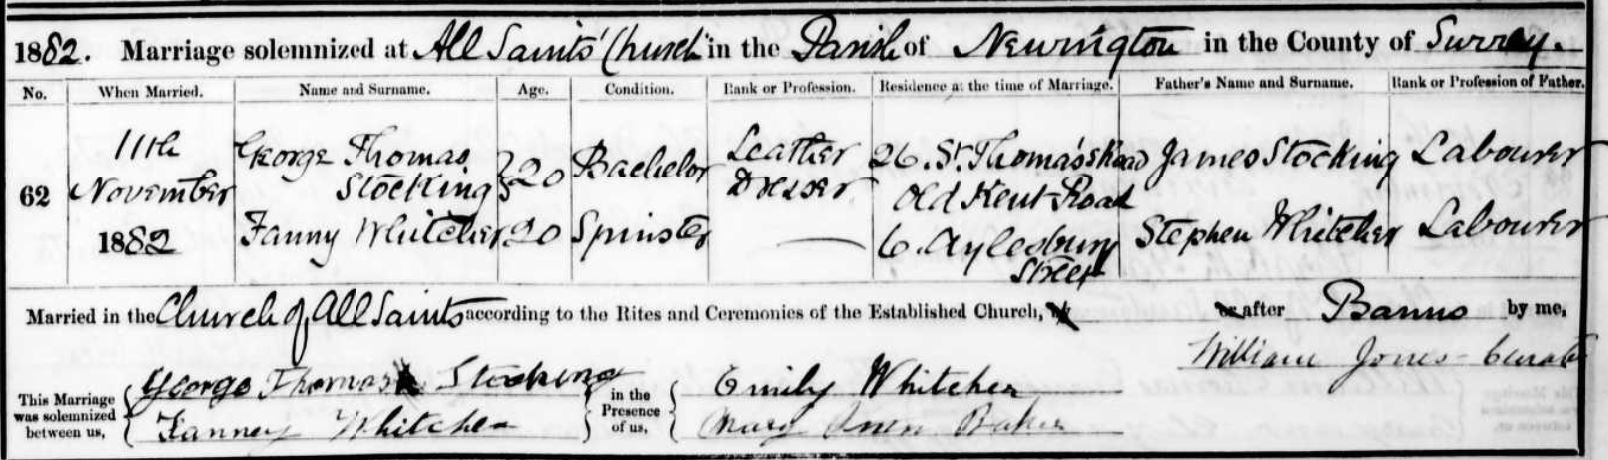 1882. Marriage solemnized at All Saints' Church in the Parish of Newington in the County of Surrey.
No. When Married. Name and Surname. Age. Condition. Rank or Profession. Residence at the time of Marriage. Father's Name and Surname. Rank or Profession of Father.
62 11th November 1882
George Thomas Stocking 20 Bachelor Leather Dresser 26. St. Thomas's Road Old Kent Road James Stocking Labourer
Fanny Whitcher 20 Spinster — 6. Aylesbury Street Stephen Whitcher Labourer
Married in the Church of All Saints according to the Rites and Ceremonies of the Established Church, by or after Banns by me,
William Jones Curate
This Marriage was solemnized between us, George Thomas Stocking in the Presence of us, Emily Whitcher
Fanney Whitcher Mary Ann Baker